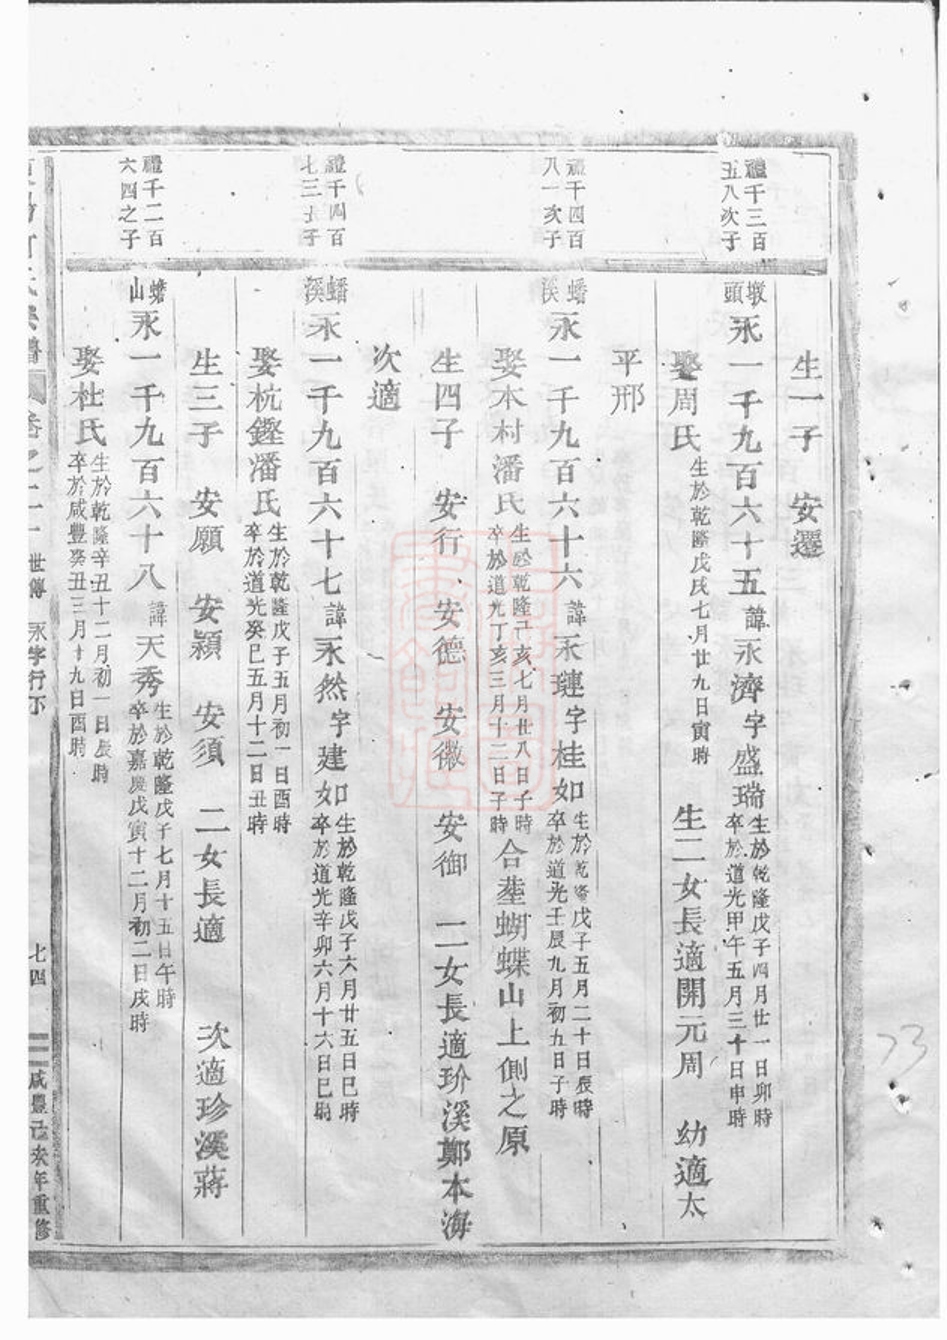 生一子 安遷
禮千三百
五八次子
墩頭
永一千九百六十五 諱 永濟 字 盛瑞 生於乾隆戊子四月廿一日卯時
卒於道光甲午五月三十日申時
娶周氏 生於乾隆戊戌七月廿九日寅時 生二女長適開元周 幼適太
平邢
禮千四百
八一次子
蟠溪
永一千九百六十六 諱 永璉 字 桂如 生於乾隆戊子五月二十日辰時
卒於道光壬辰九月初九日子時
娶本村潘氏 生於乾隆己亥七月廿八日子時
卒於道光丁亥三月十二日子時 合塟蝴蝶山上側之原
生四子 安行 安德 安徽 安御 二女長適玠溪鄭本海
次適
禮千四百
七三長子
蟠溪
永一千九百六十七 諱 永然 字 建如 生於乾隆戊子六月廿五日巳時
卒於道光辛卯六月十六日巳時
娶杭鏗潘氏 生於乾隆戊子五月初一日酉時
卒於道光癸巳五月十二日丑時
生三子 安願 安穎 安須 二女長適 次適珍溪蔣
禮千二百
六四之子
蟾山
永一千九百六十八 諱 天秀 生於乾隆戊子七月十五日午時
卒於嘉慶戊寅十二月初二日戌時
娶杜氏 生於乾隆辛丑十二月初一日辰時
卒於咸豐癸丑三月十九日酉時
世傳 永字行下 七四 咸豐己亥年重修
73